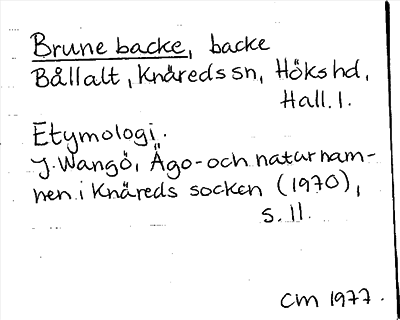 Brune backe, backe
Bållalt, Knäreds sn, Höks hd,
Hall. l.
Etymologi.
J. Wangö, Ägo- och naturnam-
nen i Knäreds socken (1970),
s. 11.
CM 1977.